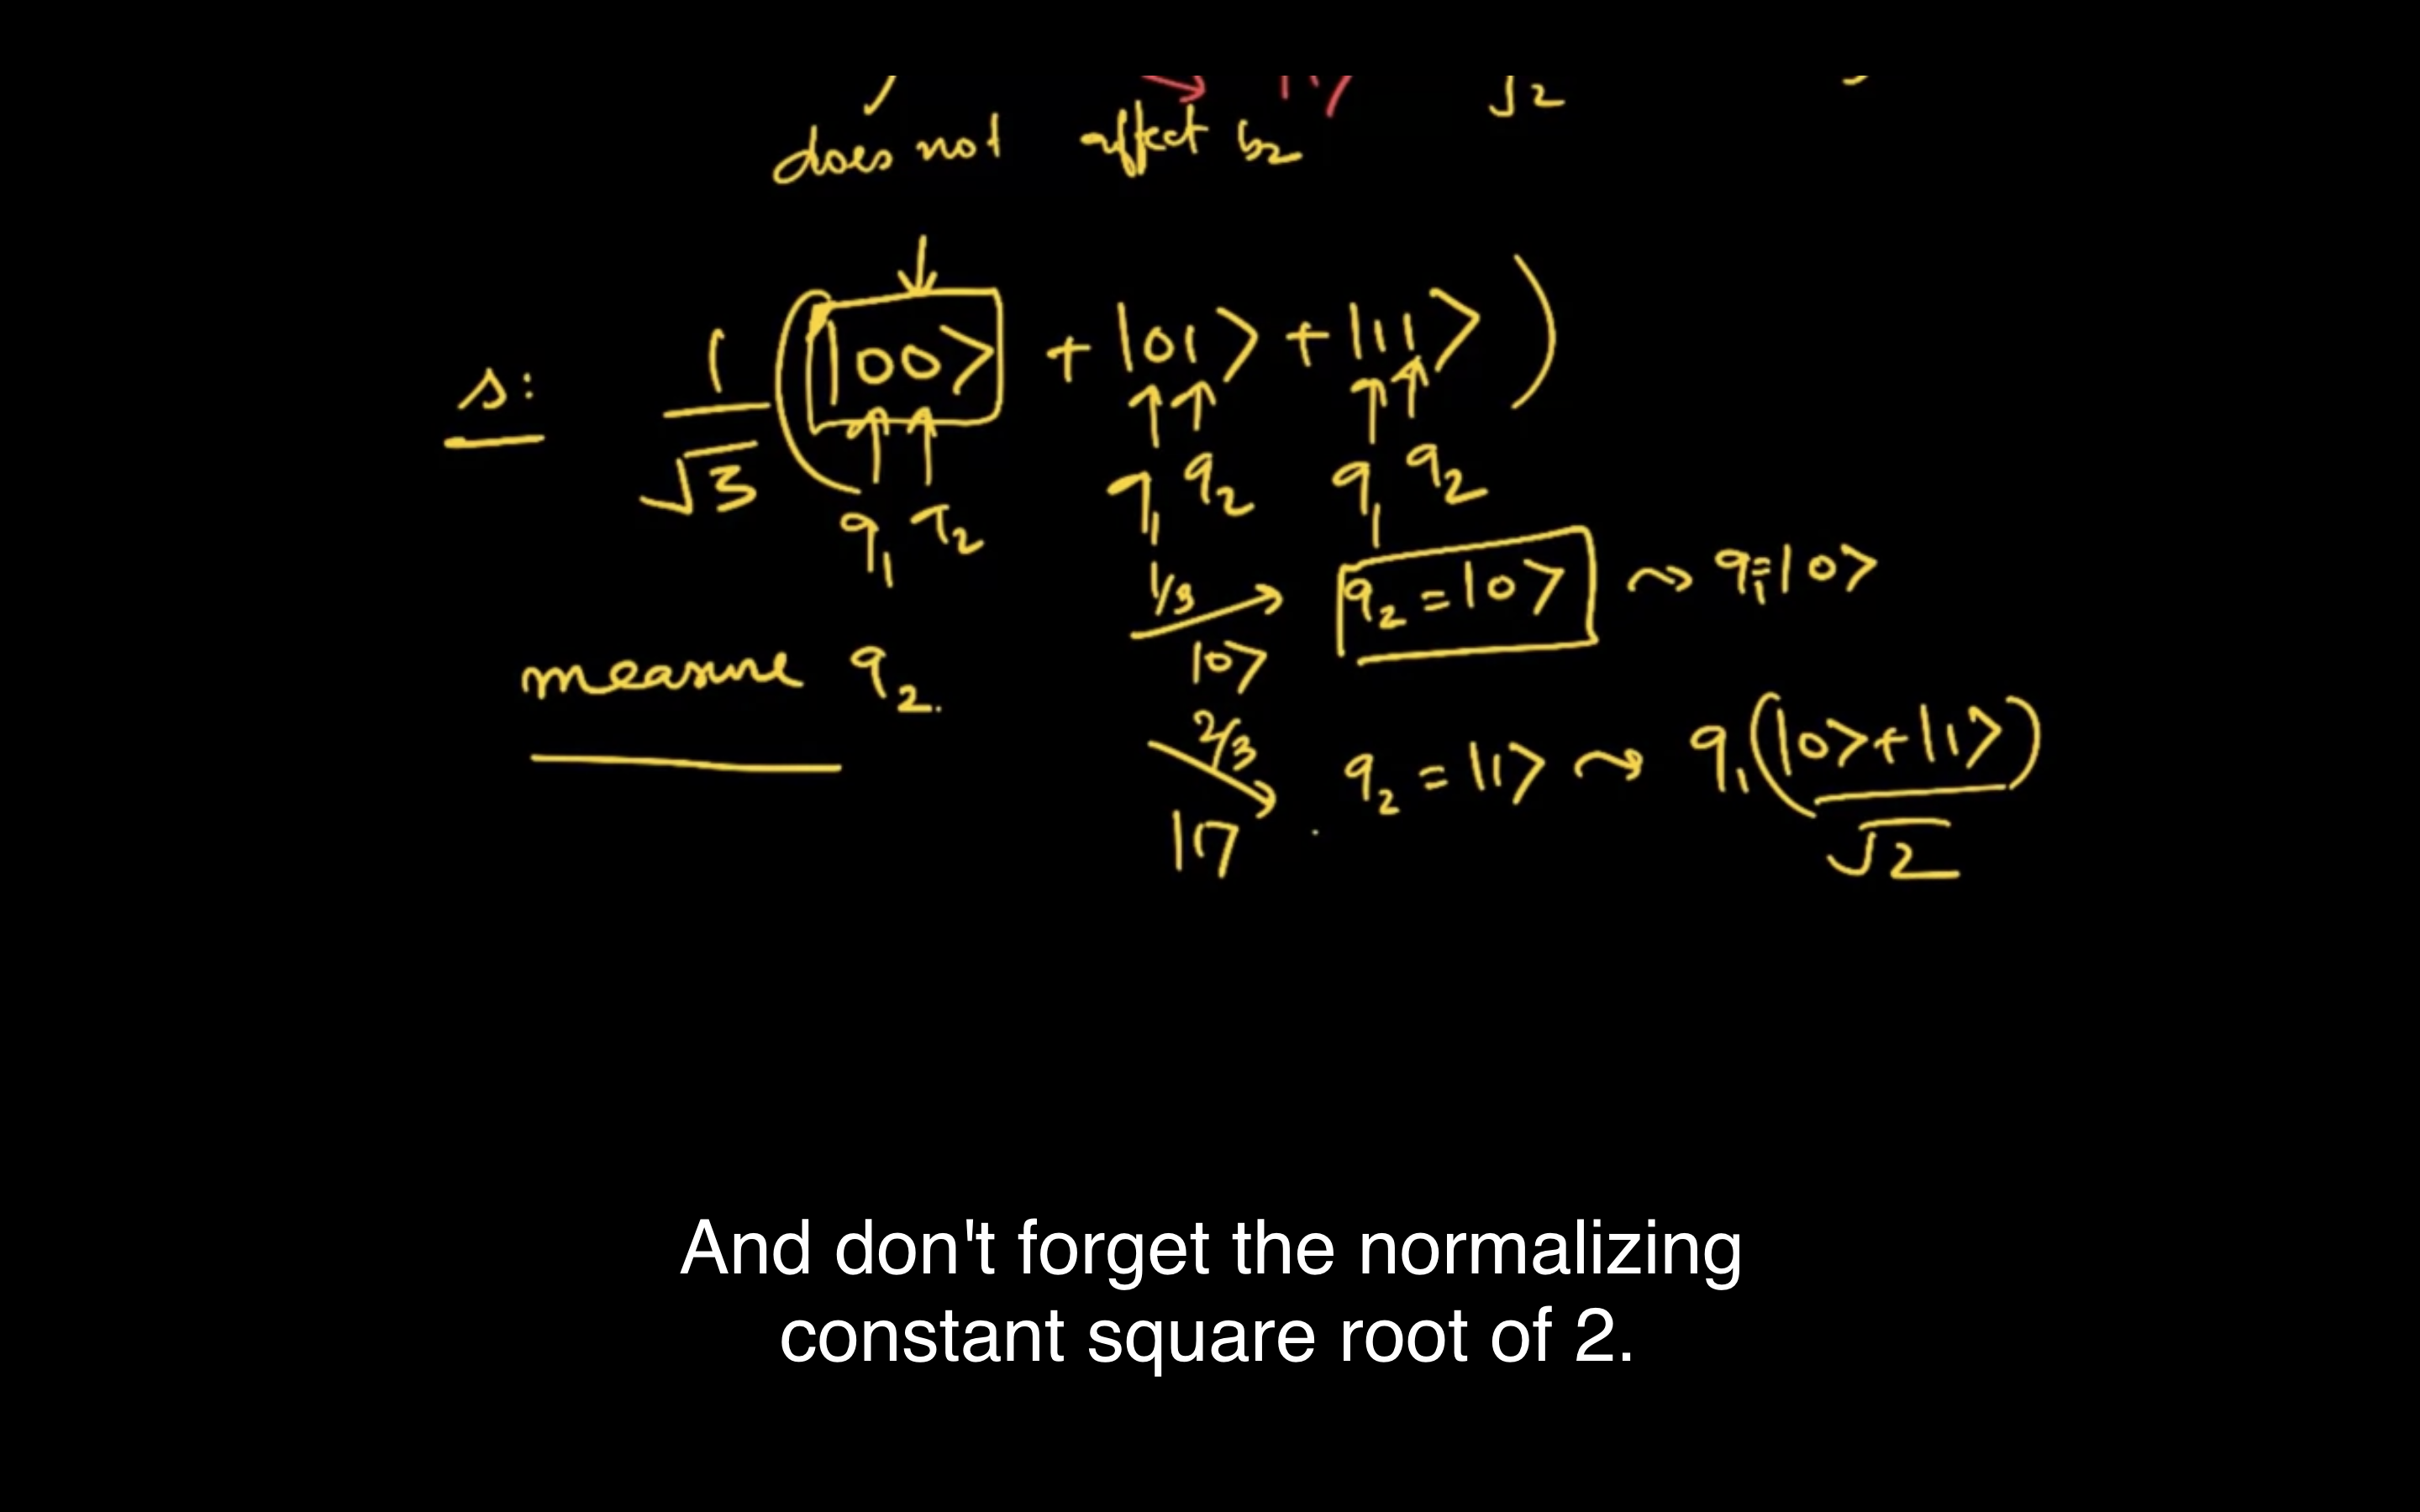 √2
does not affect b2
s: 1/√3 (|00> + |01> + |11>)
q1 q2 q1 q2 q1 q2
1/3 |0> q2 = |0> ⇝ q1 = |0>
measure q2.
2/3 |1> q2 = |1> ⇝ q1 (|0> + |1>)/√2
And don't forget the normalizing
constant square root of 2.